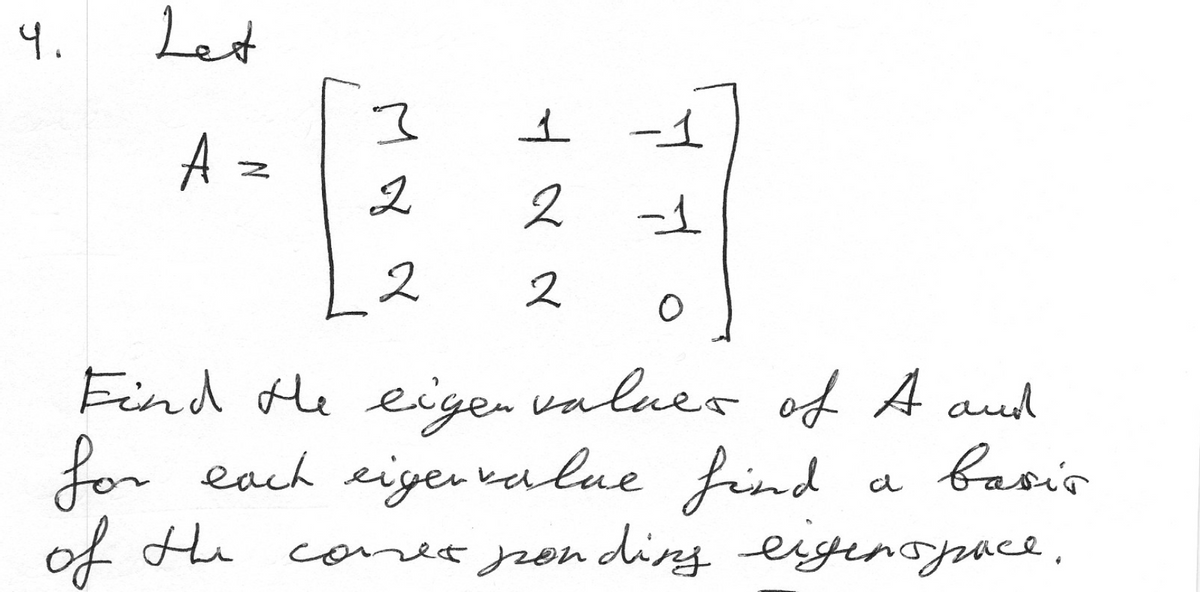 4. Let
A = [ 3 1 -1
2 2 -1
2 2 0 ]
Find the eigenvalues of A and
for each eigenvalue find a basis
of the corresponding eigenspace.